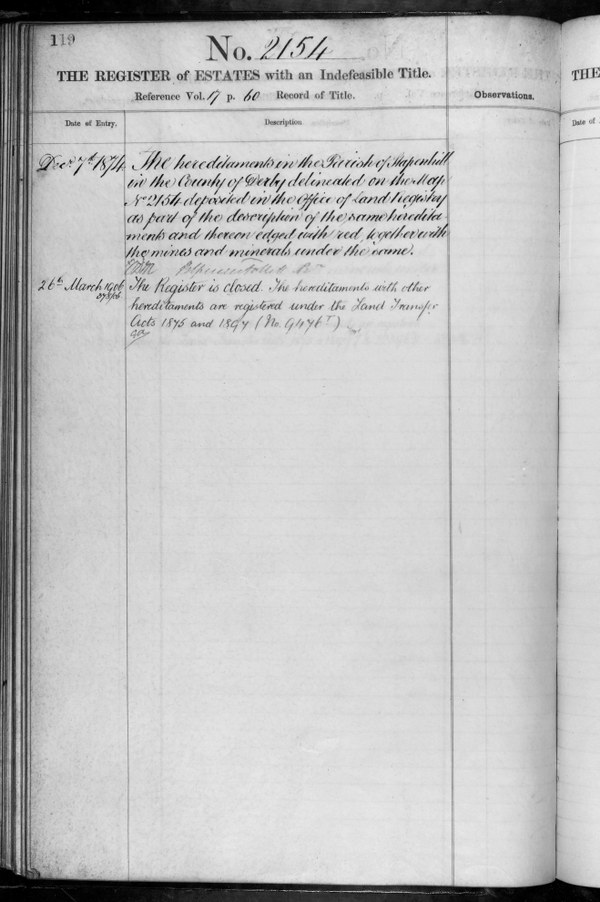 119
No. 2154
THE REGISTER of ESTATES with an Indefeasible Title.
Reference Vol. 17 p. 60 Record of Title.
Observations.
Date of Entry.
Description
Decr 7th 1874
The hereditaments in the Parish of Stapenhill
in the County of Derby delineated on the Map
No 2154 deposited in the Office of Land Registry
as part of the description of the same heredita-
ments and thereon edged with red, together with
the mines and minerals under the same.
26th March 1906
The Register is closed. The hereditaments with other
hereditaments are registered under the Land Transfer
Acts 1875 and 1897 (No. 9476
THE
Date of